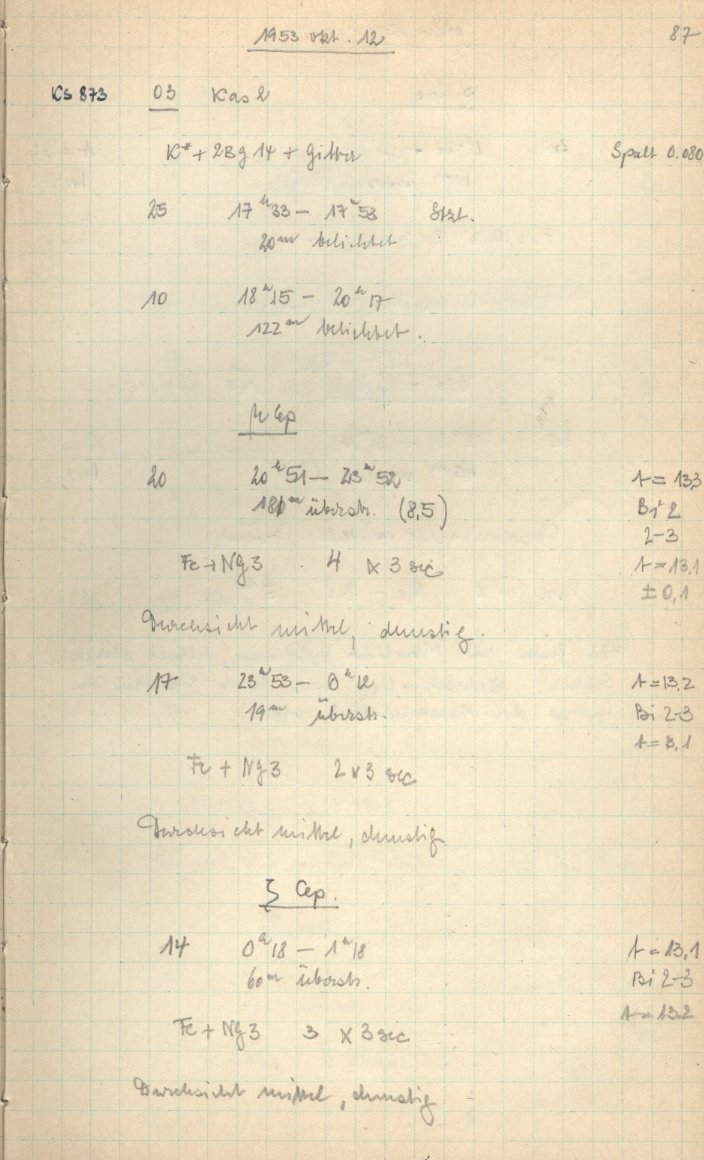 1953 Okt. 12 87
KS 873 03 Kas 2
K* + 2Bg 14 + Gitter Spalt 0.080
25 17ʰ33 – 17ʰ53 Stkt.
20ᵐ belichtet
10 18ʰ15 – 20ʰ17
122ᵐ belichtet.
μ Cep
20 20ʰ51 – 23ʰ52 t = 13,3
181ᵐ überstr. (8,5) Bi 2
2–3
Fe + Ng 3 4 x 3 sec t = 13,1
± 0,1
Durchsicht mittel, dunstig.
17 23ʰ53 – 0ʰ12 t = 13,2
19ᵐ überstr. Bi 2-3
t = 3,1
Fe + Ng 3 2 x 3 sec
Durchsicht mittel, dunstig
ζ Cep.
14 0ʰ18 – 1ʰ18 t = 13,1
60ᵐ überstr. Bi 2-3
t = 13.2
Fe + Ng 3 3 x 3 sec
Durchsicht mittel, dunstig